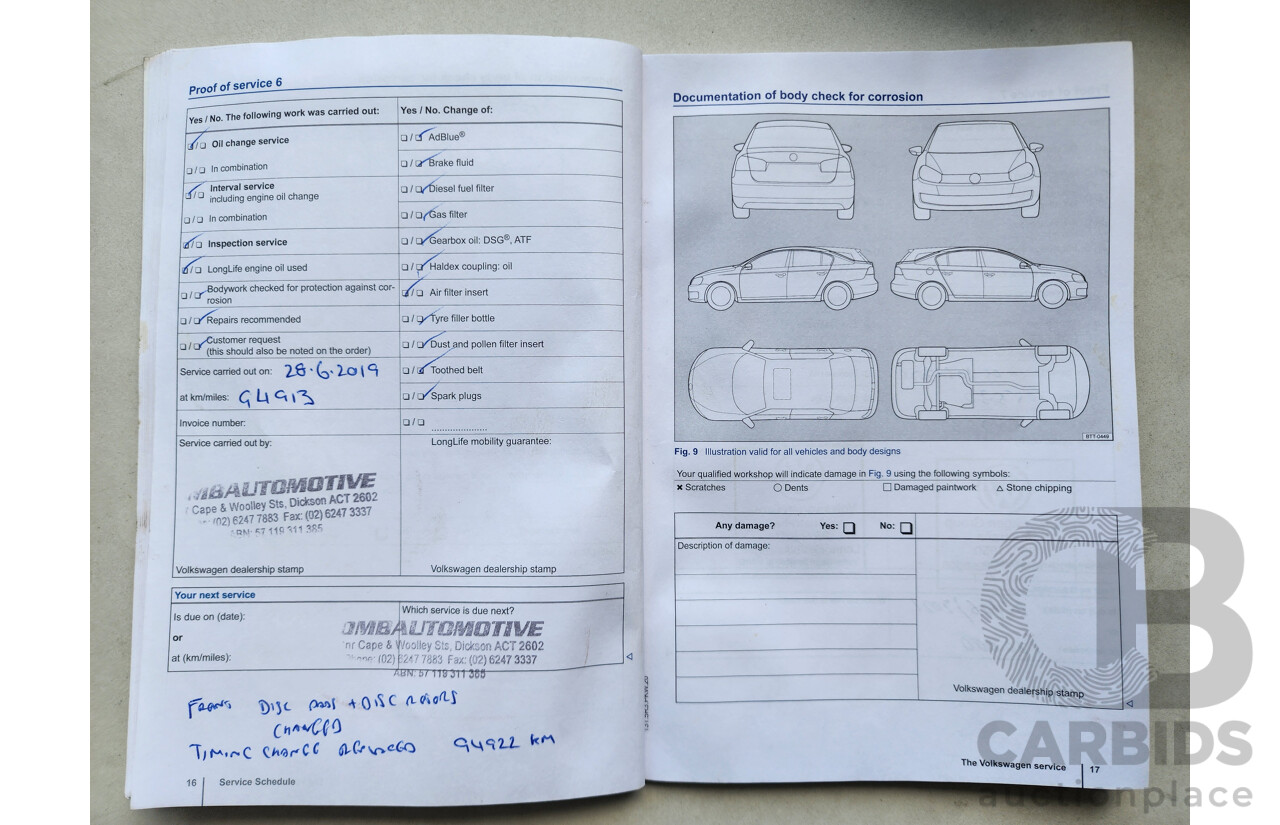 Proof of service 6
Yes / No. The following work was carried out:
Oil change service
In combination
Interval service
including engine oil change
In combination
Inspection service
LongLife engine oil used
Bodywork checked for protection against cor-
rosion
Repairs recommended
Customer request
(this should also be noted on the order)
Service carried out on: 28.6.2019
at km/miles: 94913
Invoice number:
Service carried out by:
MBAUTOMOTIVE
Cape & Woolley Sts, Dickson ACT 2602
(02) 6247 7883 Fax: (02) 6247 3337
ABN: 57 119 311 385
Volkswagen dealership stamp
Yes / No. Change of:
AdBlue®
Brake fluid
Diesel fuel filter
Gas filter
Gearbox oil: DSG®, ATF
Haldex coupling: oil
Air filter insert
Tyre filler bottle
Dust and pollen filter insert
Toothed belt
Spark plugs
LongLife mobility guarantee:
Volkswagen dealership stamp
Your next service
Is due on (date):
or
at (km/miles):
Which service is due next?
OMBAUTOMOTIVE
Cape & Woolley Sts, Dickson ACT 2602
Phone: (02) 6247 7883 Fax: (02) 6247 3337
ABN: 57 119 311 385
DISC PADS + DISC ROTORS
CHANGED
TIMING CHANGE 94922 KM
16 Service Schedule
Documentation of body check for corrosion
BTT-0449
Fig. 9 Illustration valid for all vehicles and body designs
Your qualified workshop will indicate damage in Fig. 9 using the following symbols:
Scratches Dents Damaged paintwork Stone chipping
Any damage? Yes: No:
Description of damage:
Volkswagen dealership stamp
The Volkswagen service 17
CARBIDS
auctionplace